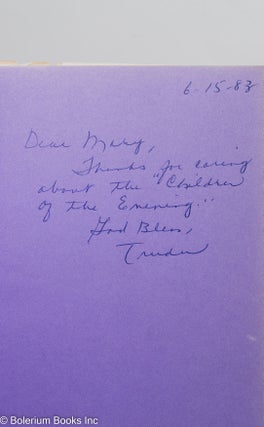 6-15-83
Dear Mary,
Thanks for caring
about the "Children
of the Evening."
God Bless,
Trudee
© Bolerium Books Inc